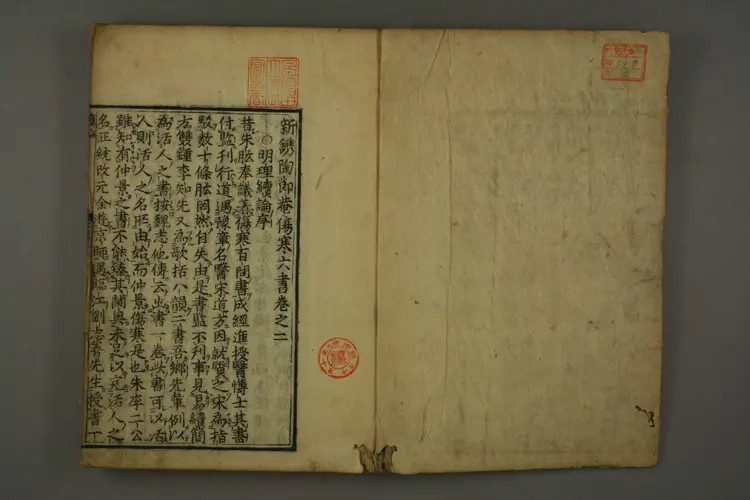 新鐫陶節菴傷寒六書卷之二
○明理續論序
昔朱肱奉議著傷寒百問書成經進授醫博士其書
付監刊行道遇豫章名醫宋道方因就質之宋為指
駁數十條肱罔然自失由是書監不刊事見易續簡
方雙鍾李知先又為歌括八韻二書吾鄉先輩例以
為活人之書按魏志佗傳云出書一卷此書可以活
人則活人之名肱由始而仲景傷寒是也朱李二公
雖知有仲景之書不能臻其閫奧未足以尽活人之
名正統改元余趨京師遇臨江劉志善先生授書一